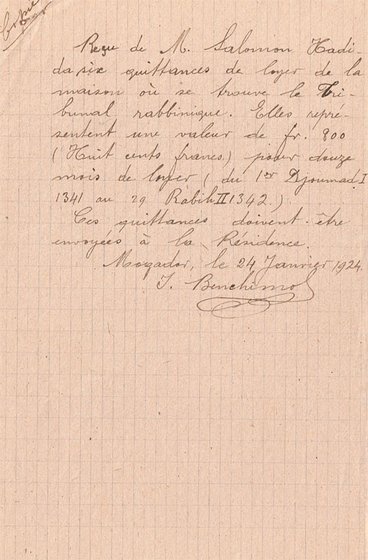 Copie
Reçu de M. Salomon Hadi-
da six quittances de loyer de la
maison où se trouve le Tri-
bunal rabbinique. Elles repré-
sentent une valeur de fr. 800
(Huit cents francs) pour douze
mois de loyer (du 1er Djoumad I
1341 au 29 Rabih II 1342.)
Ces quittances doivent être
envoyées à la Résidence.
Mogador, le 24 Janvier 1924.
J. Benchimol